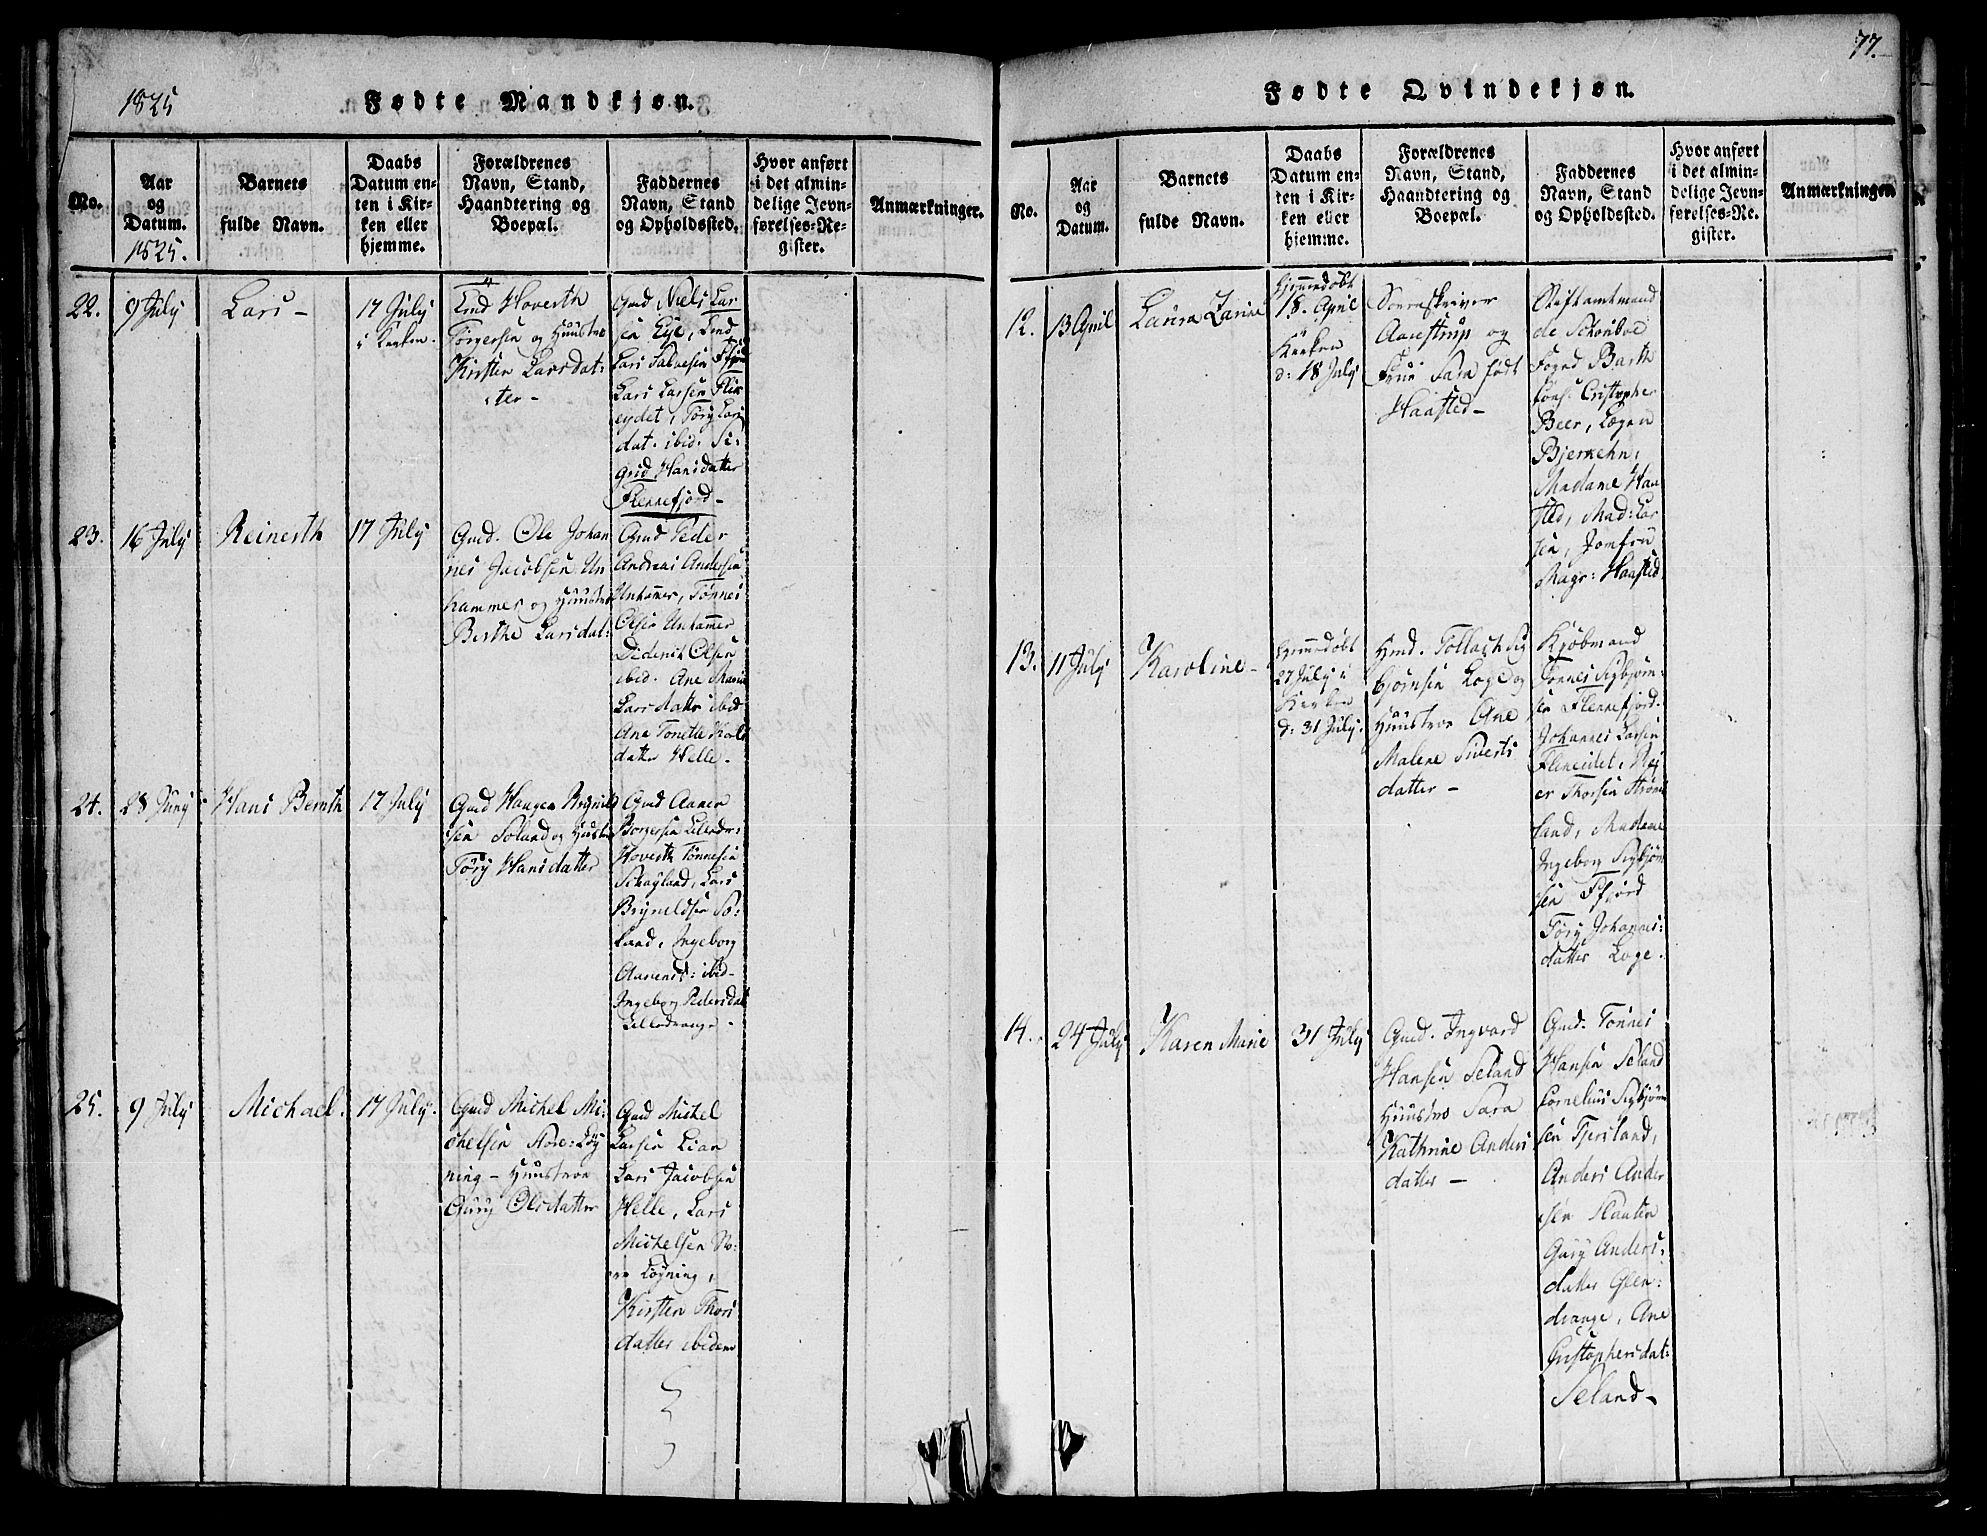 1825
Fødte Mandkjøn.
No.
Aar
og
Datum.
1825.
Barnets
fulde Navn.
Daabs
Datum en-
ten i Kir-
ken eller
hjemme.
Forældrenes
Navn, Stand,
Haandtering og
Boepæl.
Faddernes
Navn, Stand
og Opholdssted.
Hvor anført
i det almin-
delige Jevn-
førelses-Re-
gister.
Anmærkninger.
22.
9 July
Lars -
17 July
i Kirken.
Hoverth
Torgersen og Huustroe
Kirsten Larsdat:
ter -
Gmd Niels Lar
sen Eye,
Lars Salvesen
Lars Larsen Flik
eydet, Tory Lars
dat. ibid: Si:
grid Hansdatter
Flekkefjord -
23.
16 July
Reinerth
17 July
Gmd. Ole Johan
nes Jacobsen Un
hammer og Huustroe
Berthe Larsdat:
Gmd Peder
Andreas Andersen
Unhamer, Tønnes
Olsen Unhamer
Diderik Olsen
ibid. Ane Marie
Larsdatter ibid
Ane Tonette Karls
datter Helle -
24.
28 Juny
Hans Bernth
17 July
Gmd Haagen Brynild
sen Soland og Huustr
Tory Hansdatter
Gmd Aanen
Borgersen Lilledr:
Hoverth Tønnesen
Skagland, Lars
Bryneldsen So:
land, Ingeborg
Aanensd: ibid -
Ingeborg Pedersdat
Lilledrange -
25.
9 July
Michael.
17 July.
Gmd Michel Mi:
chelsen Store: Løy
ning - Huustroe
Gury Olsdatter
Gmd Michel
Larsen Lian
Lars Jacobsen
Helle, Lars
Michelsen
Løyning,
Kirsten Thors
datter ibidem
77.
Fødte Qvindekjøn.
No.
Aar
og
Datum.
Barnets
fulde Navn.
Daabs
Datum en-
ten i Kir-
ken eller
hjemme.
Forældrenes
Navn, Stand,
Haandtering og
Boepæl.
Faddernes
Navn, Stand
og Opholdssted.
Hvor anført
i det almin-
delige Jevn-
førelses-Re-
gister.
Anmærkninger
12.
13 April
Laura Zarine
Hjemmedøbt
18. April
i
Kirken
d: 18 July
Sorenskriver
Aarestrup og
Frue Sara født
Haasted -
Stiftamtmand
de Schouboe
Foged Barth
Cons. Cristopher
Beer, Lægen
Bjerkehn,
Madame Haa
sted, Mad: Lar
sen, Jomfru
Magr: Haasted
13.
11 July
Karoline -
Hjemmedøbt
27 July i
Kirken
d: 31 July.
Hmd. Tollach Sig
bjørnsen Loge og
Huustroe Ane
Malene Siverts
datter -
Kjøbmand
Tønnes Sigbjørn:
sen Flekkefjord.
Johannes Larsen
Flikeidet, Rej
er Thorsen Strøms
land, Madame
Ingeborg Sigbjørn
sen Ffjord
Tory Johannes:
datter Loge.
14.
24 July
Karen Marie
31 July
Gmd. Ingvard
Hansen Seland
Huustro Sara
Kathrine Anders
datter -
Gmd. Tønnes
Hansen Seland
Cornelius Sigbjørn
sen Tjersland,
Anders Ander
sen
Gury Anders:
datter Glen:
drange, Ane
Cristophersdat:
Seland -